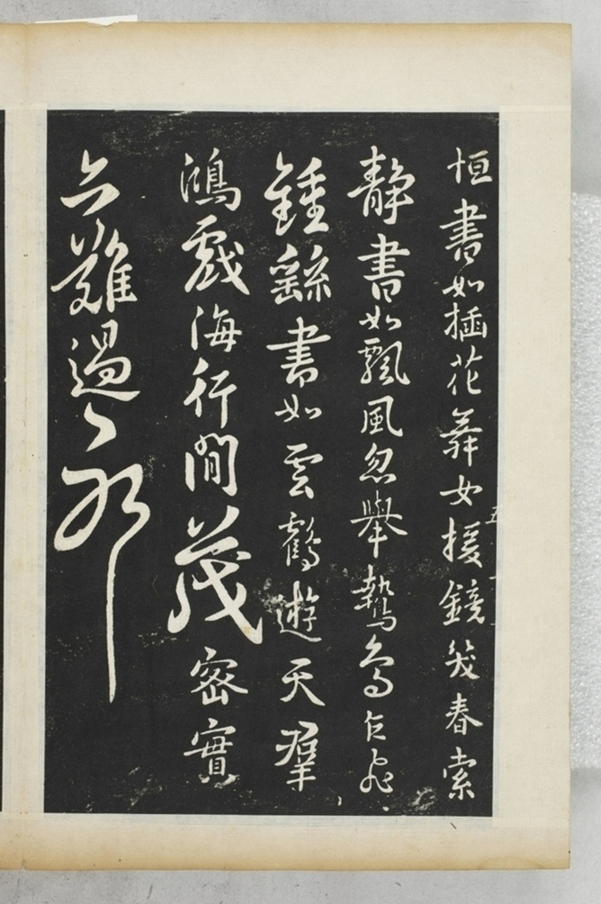 恒書如插花舞女援鏡笑春索
靜書如飄風忽舉鷙鳥乍飛
鍾繇書如雲鶴遊天羣
鴻戲海行間茂密實
亦難過耶